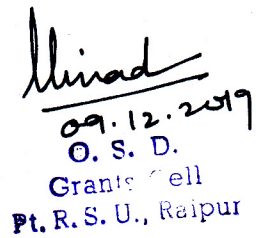 09.12.2019
O. S. D.
Grants Cell
Pt. R. S. U., Raipur